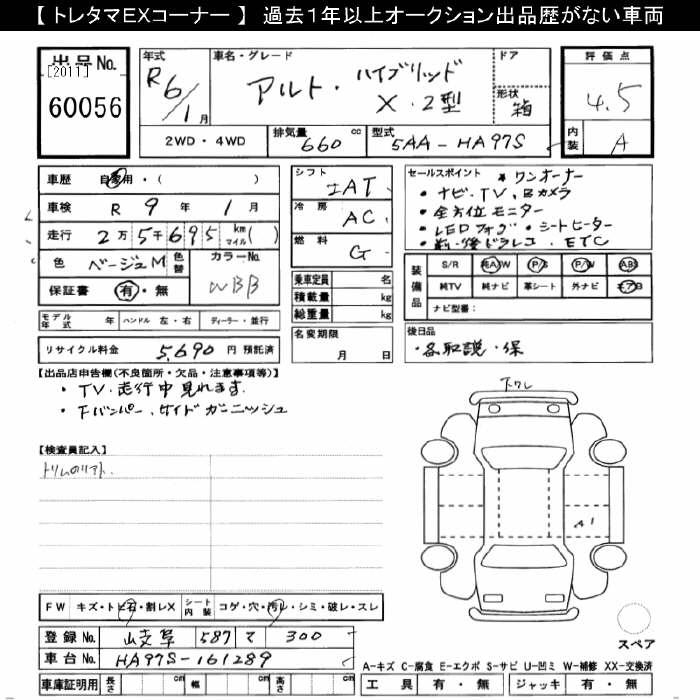 【 トレタマEXコーナー 】 過去1年以上オークション出品歴がない車両
出品No.
[2011]
60056
年式
R6/1月
車名・グレード
アルト・ハイブリッド
X・2型
ドア
形状
箱
評価点
4.5
内装
A
2WD・4WD
排気量
660 cc
型式
5AA-HA97S
車歴 自家用・( )
車検 R 9年 1月
走行 2万5千695 km マイル( )
色 ベージュM 色替
カラーNo.
WBB
保証書 有・無
シフト
IAT
冷房
AC
燃料
G
乗車定員 名
積載量 kg
総重量 kg
セールスポイント ＊ワンオーナー
・ナビ・TV、Bカメラ
・全方位モニター
・LEDフォグ・シートヒーター
・前・後ドラレコ、ETC
装備品
S/R 純A/W P/S P/W ABS
純TV 純ナビ 革シート 外ナビ エアB
ナビ型番:
モデル年式 年 ハンドル 左・右 ディーラー・並行
リサイクル料金 5,690 円 預託済
名変期限
月 日
後日品
・各取説・保
【出品店申告欄(不良箇所・欠品・注意事項等)】
・TV・走行中見れます
・Fバンパー、サイドガーニッシュ
下ワレ
【検査員記入】
A1
FW キズ・トビ石・割レX シート内装 コゲ・穴・汚レ・シミ・破レ・スレ
登録No. 岐阜 587 て 300
車台No. HA97S-161289
車庫証明用 長さ cm 幅 cm 高さ cm
スペア
A-キズ C-腐食 E-エクボ S-サビ U-凹ミ W-補修 XX-交換済
工具 有・無 ジャッキ 有・無